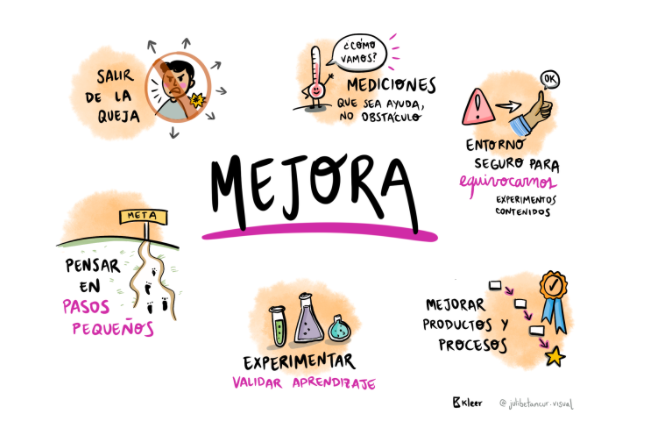 SALIR
DE LA
QUEJA
¿CÓMO
VAMOS?
MEDICIONES
QUE SEA AYUDA,
NO OBSTÁCULO
OK
ENTORNO
SEGURO PARA
equivocarnos
EXPERIMENTOS
CONTENIDOS
MEJORA
META
PENSAR
EN
PASOS
PEQUEÑOS
EXPERIMENTAR
VALIDAR APRENDIZAJE
MEJORAR
PRODUCTOS Y
PROCESOS
Kleer
@julibetancur.visual